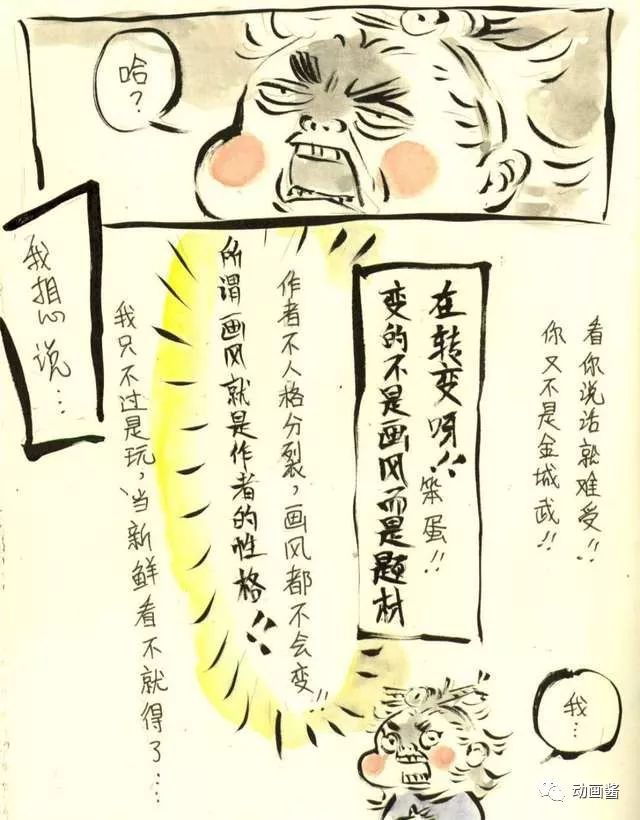 哈?
看你说话就难受!!
你又不是金城武!!
在转变呀!!
笨蛋!!
变的不是画风而是题材
作者不人格分裂，画风都不会变!!
所谓画风就是作者的性格!!
我…
我想说…
我只不过是玩，当新鲜看不就得了…
动画酱